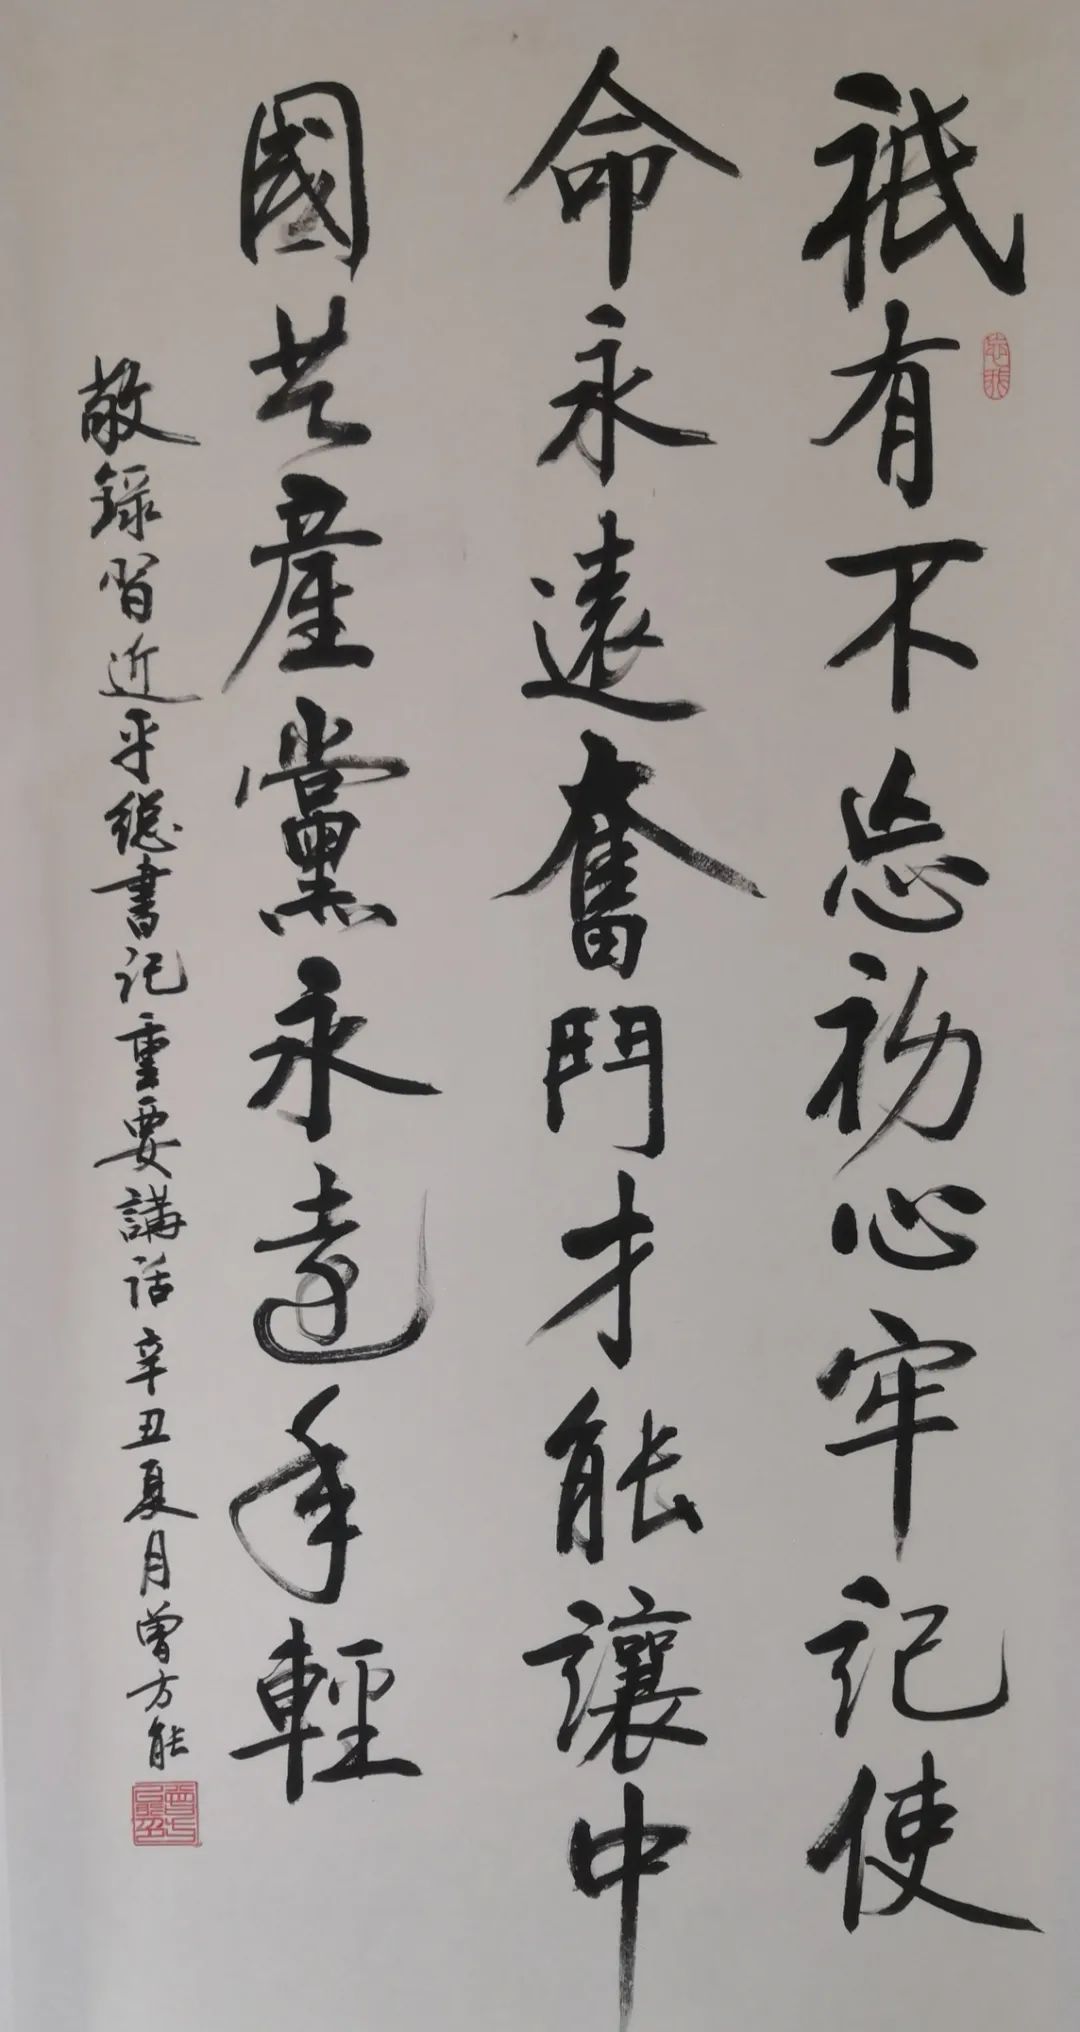 祇有不忘初心牢記使
命永遠奮鬥才能讓中
國共產黨永遠年輕
敬錄習近平總書記重要講話辛丑夏月曾方能